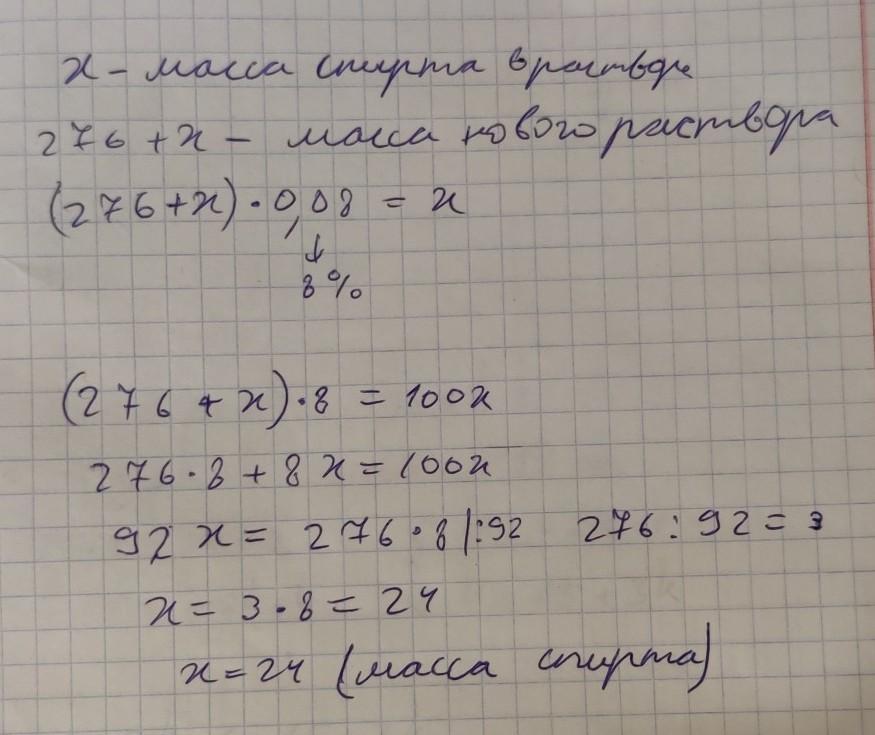 x - масса спирта в растворе
276 + x - масса нового раствора
(276 + x) · 0,08 = x
↓
8%
(276 + x) · 8 = 100x
276 · 8 + 8x = 100x
92x = 276 · 8 |:92 276 : 92 = 3
x = 3 · 8 = 24
x = 24 (масса спирта)